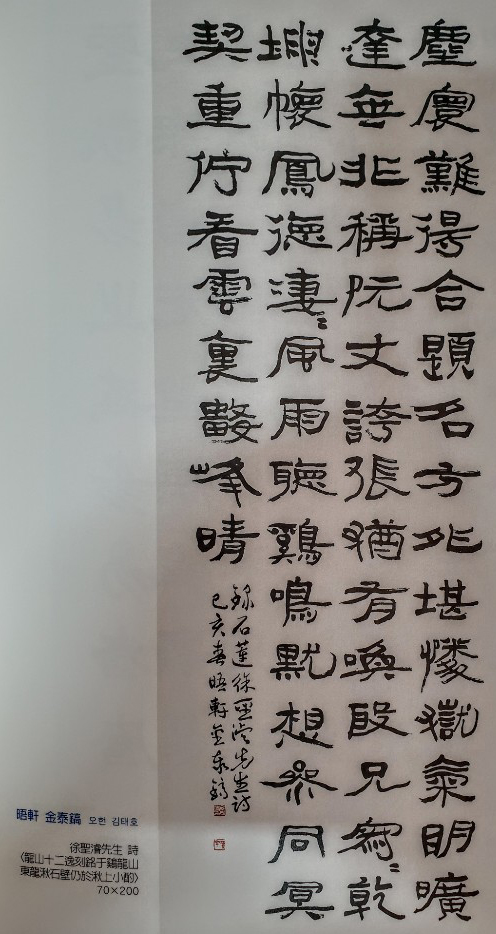 塵寰難得合題名方外堪憐嶽氣明曠
達無非稱阮丈誇張猶有喚殷兄寥〻乾
坤懷鳳德凄〻風雨聽鷄鳴默想參同冥
契重佇看雲裏數峰晴
錄石蓮徐聖濬先生詩
己亥春晤軒金泰鎬
晤軒 金泰鎬 오헌 김태호
徐聖濬先生 詩
〈龍山十二逸刻銘于鷄龍山
東龍湫石壁仍於湫上小酌〉
70×200